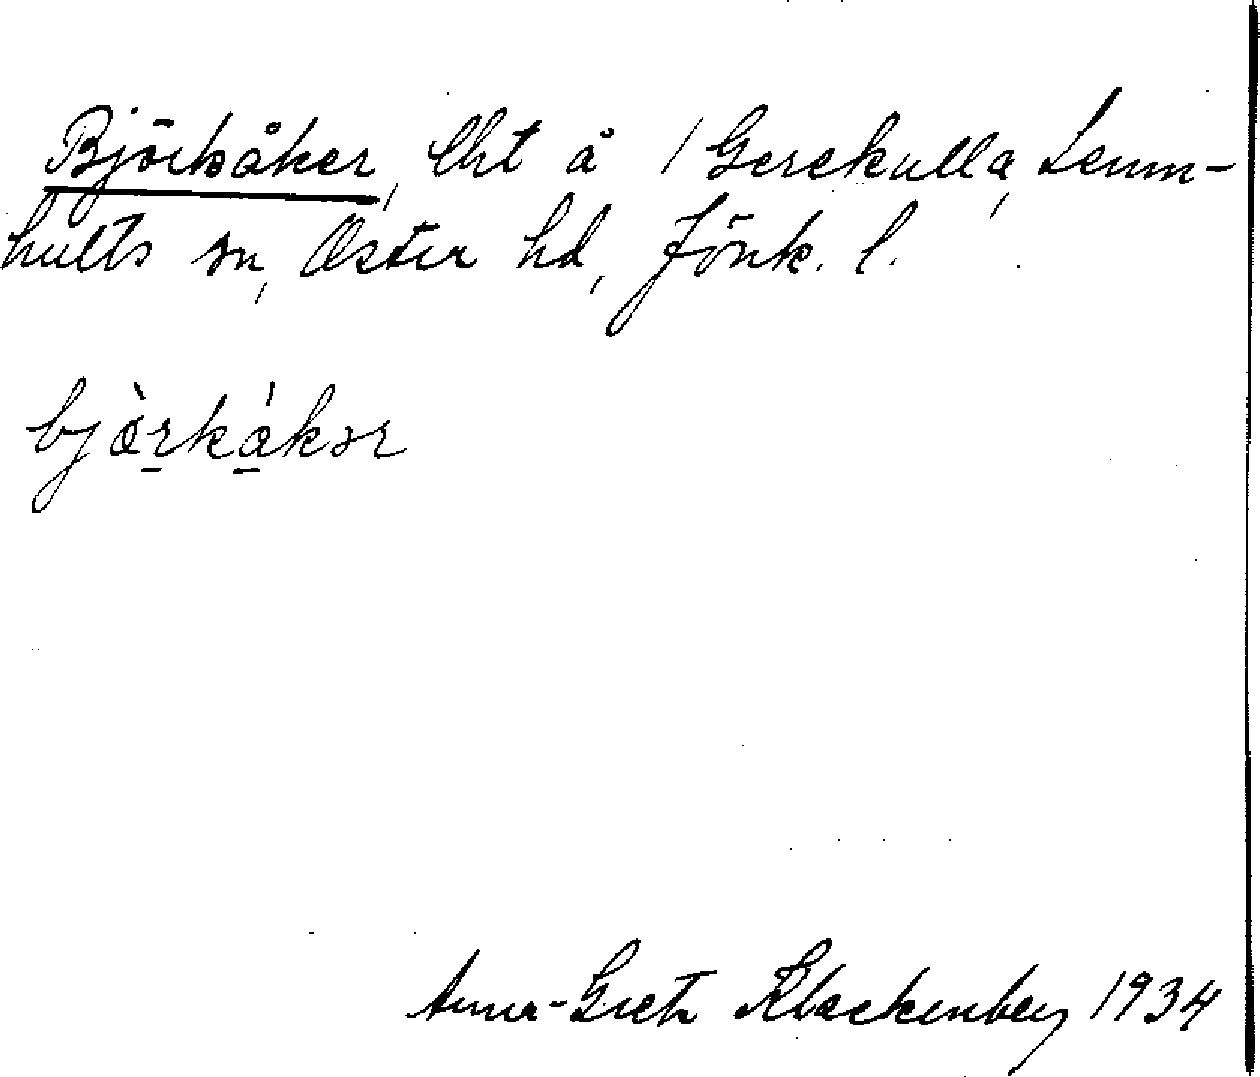 Björkåker, lht å 1 Gerekulla, Lemm-
hults sn, Öster hd, Jönk. l.
bjö̀rkákər
Anna-Greta Klackenberg 1934